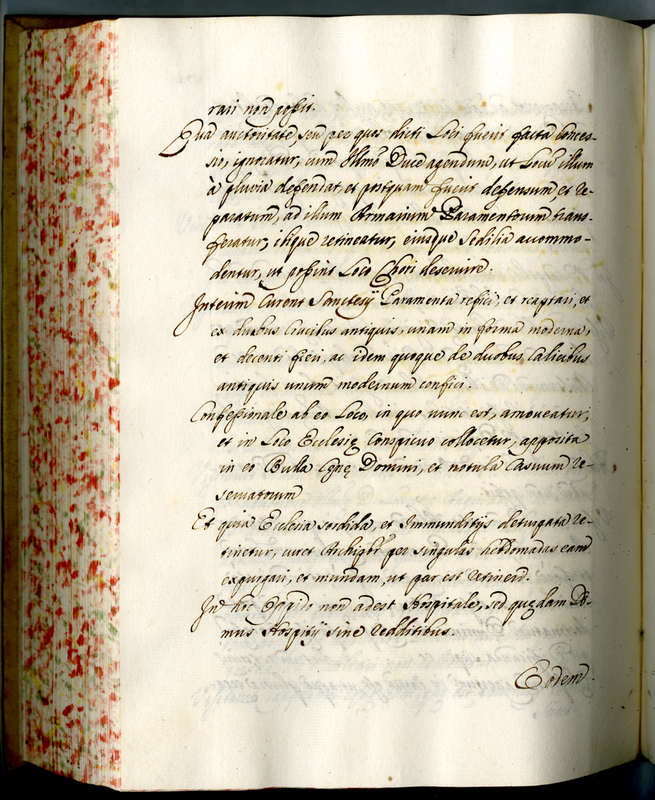 rari non possit.
Qua auctoritate, seu per quos dicti Loci fuerit facta conces-
sio, ignoratur, cum Illmo Duce agendum, ut Locus illum
à pluvia defendat, et postquam fuerit defensum, et re-
paratum, ad illum Armarium Paramentorum trans-
feratur, ibique retineatur, eiusque Sedilia accommo-
dentur, ut possint Loco Chori deservire.
Interim Curent Sanctesij Paramenta refici, et reaptari, et
ex duabus Crucibus antiquis, unam in forma moderna,
et decenti fieri, ac idem quoque de duobus Calicibus
antiquis unum modernum confici.
Confessionale ab eo Loco, in quo nunc est, amoveatur,
et in Loco Ecclesię Conspicuo collocetur, apposita
in eo Bulla Cęnę Domini, et notula Casuum re-
servatorum
Et quia Ecclesia sordida, et Immunditijs deturpata re-
tinetur, curet Archipbr per singulas hebdomadas eam
expurgari, et mundam, ut par est retineri.
In hoc Oppido non adest Hospitale, sed quędam Do-
mus Hospitij sine redditibus.
Eodem